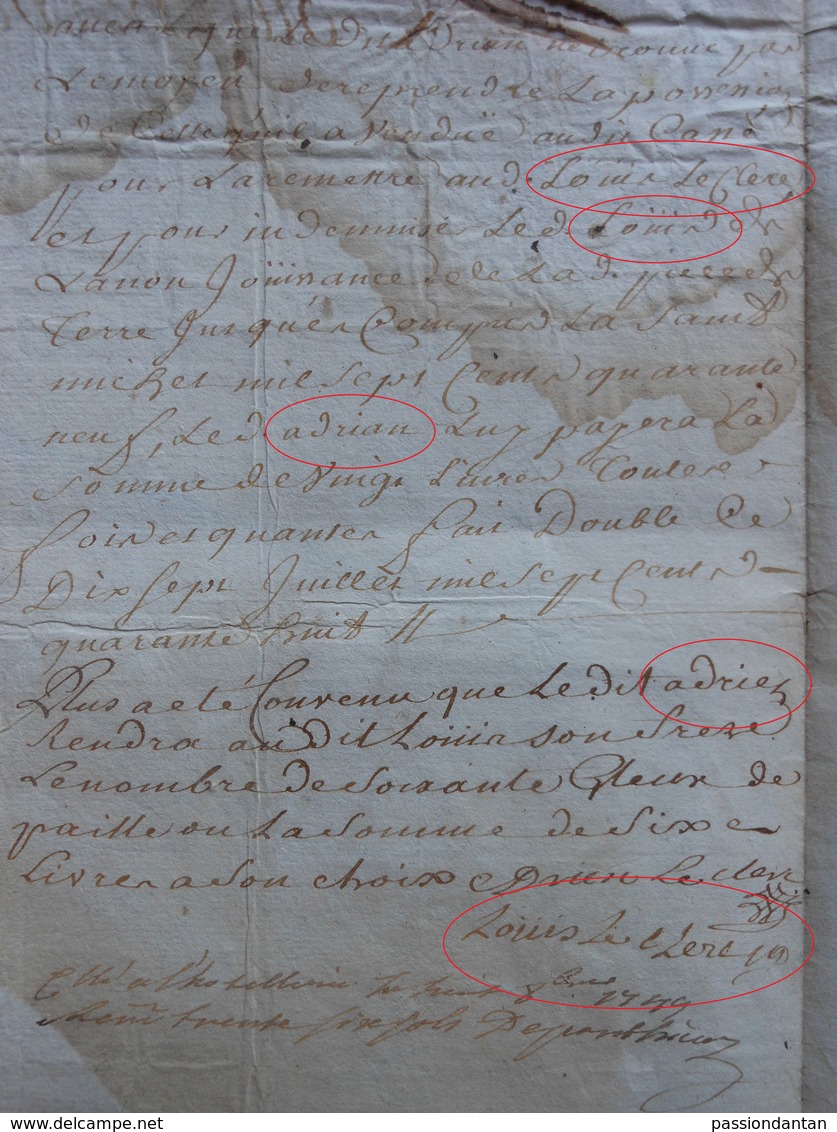 Le moyen de reprendre La possession
de Celle qu'il a Vendue audit
pour La remettre aud Loüis Le Clerc
et pour indemniser Led Loüis de
La non Joüissance de Lad. piece de
Terre Jusques Compris La Saint
michel mil Sept Cents quarante
neuf, Led adrian Luy payera La
Somme de Vingt Livres Toutes
fois et quantes fait Double Ce
Dix Sept Juillet mil Sept Cents
quarante huit //
Plus a eté Convenu que Le dit adrien
Rendra au dit Loüis son frere
Le nombre de Soixante Gleux de
paille ou La Somme de Sixe
Livres a Son choix Adrien Le clerc
Loüis Le Clerc
trente six sols
www.delcampe.net
passiondantan